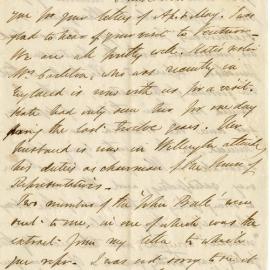 you for your letter of April May. I was
glad to hear of your visit to
We are all pretty well. Kate's sister
Mrs , who was recently in
England is now with us for a visit.
Kate had only seen her for one day
during the last twelve years. Her
husband is now in Wellington attending
his duties as chairman of the House of
Representatives.
Two numbers of the "John Bull" were
sent to me, in one of which was the
extract from my letter to which
you refer. I was not sorry to see it